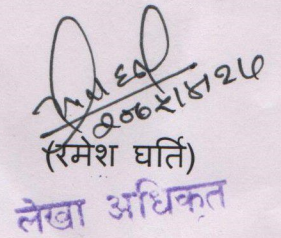 २०७५।४।२५
(रमेश घर्ति)
लेखा अधिकृत